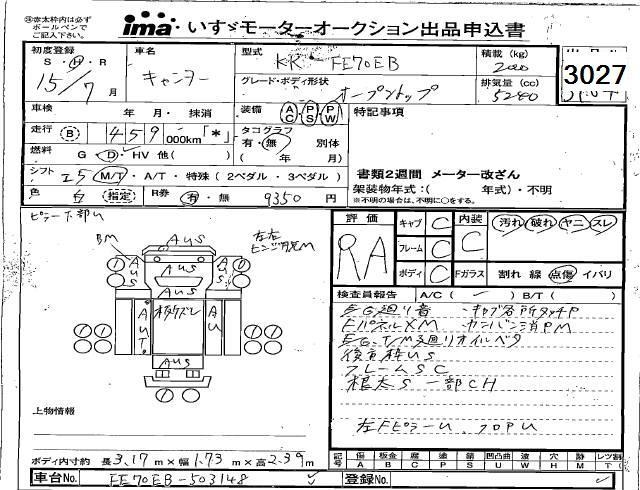 ㊟赤太枠内は必ず
ボールペンで
ご記入下さい。
ima いすゞモーターオークション出品申込書
初度登録 車名 型式 積載 (kg)
S・H・R キャンター KK-FE70EB 2000
15年 7月 グレード・ボディ形状 排気量 (cc)
オープントップ 5240
3027
車検 年・月・抹消 装備 AC PS PW 特記事項
走行 B 459 000km「*」 タコグラフ
有・無 別体
燃料 G・D・HV 他( ) ( 年 月) 書類2週間 メーター改ざん
シフト 5 M/T・A/T・特殊 (2ペダル・3ペダル) 架装物年式:( 年式)・不明
※不明の場合は、不明に○をする。
色 白 (指定) R券 有・無 9350円
ピラー下部U
BM AUS 左右ヒンジ
AUS
AUS
AUT AU
AUS
評価 RA
キャブ C 内装 C 汚れ 破れ ヤニ スレ
フレーム C
ボディ C Fガラス 割れ 線 点傷 イバリ
検査員報告 A/C( ✓ ) B/T( )
EG廻り音 キャブ各所タッチP
FパネルXM カンバン消PM
EG.T/M廻りオイルベタ
後 枠US
フレームSC
根太S 一部CH
左FピラーU フロアU
上物情報
記号 傷 A 板金 B 腐 C 塗 P 錆 S 凹凸曲 U 波 W 穴 H 跡 M レツ割 T
ボディ内寸約 長3.17m×幅1.73m×高2.39m
車台No. FE70EB-503148 登録No.